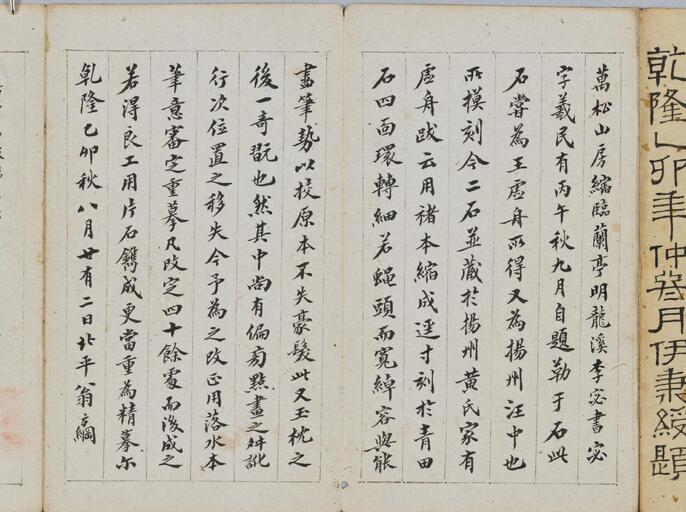 乾隆乙卯年仲春月伊秉綬題
萬松山房縮臨蘭亭明龍溪李宓書宓
字羲民有丙午秋九月自題勒于石此
石嘗為王虛舟所得又為揚州汪中也
所摸刻今二石並藏於揚州黃氏家有
虛舟跋云用褚本縮成逕寸刻於青田
石四面環轉細若蝇頭而寬綽容與能
盡筆勢以挍原本不失豪髮此又玉枕之
後一奇翫也然其中尚有偏旁點畫之舛訛
行次位置之移失今予為之改正用落水本
筆意審定重摹凡改定四十餘處而後成之
若得良工用片石鐫成更當重為精摹尓
乾隆乙卯秋八月廿有二日北平翁方綱